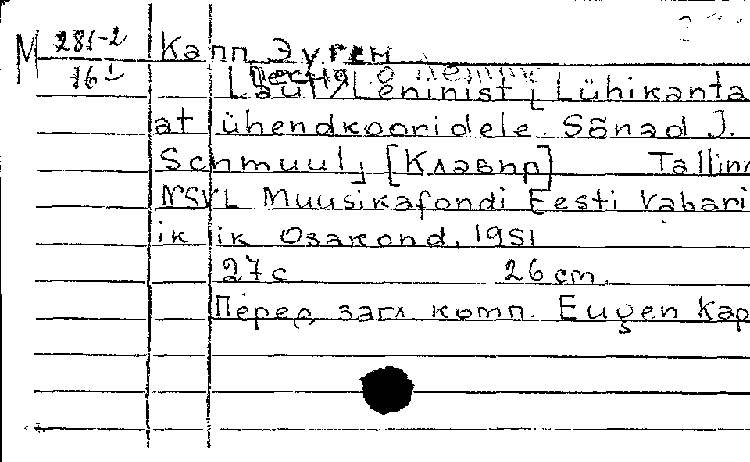 М 281-2 Капп, Эуген
16 I Песня о
Laul Leninist, Lühikanta
at ühendkooridele. Sõnad J.
Schmuul, [Клавир] Tallinn
NSVL Muusikafondi Eesti Vabari
ik ik Osakond, 1951
27 с 26 cm.
Перед загл. комп. Eugen Kap